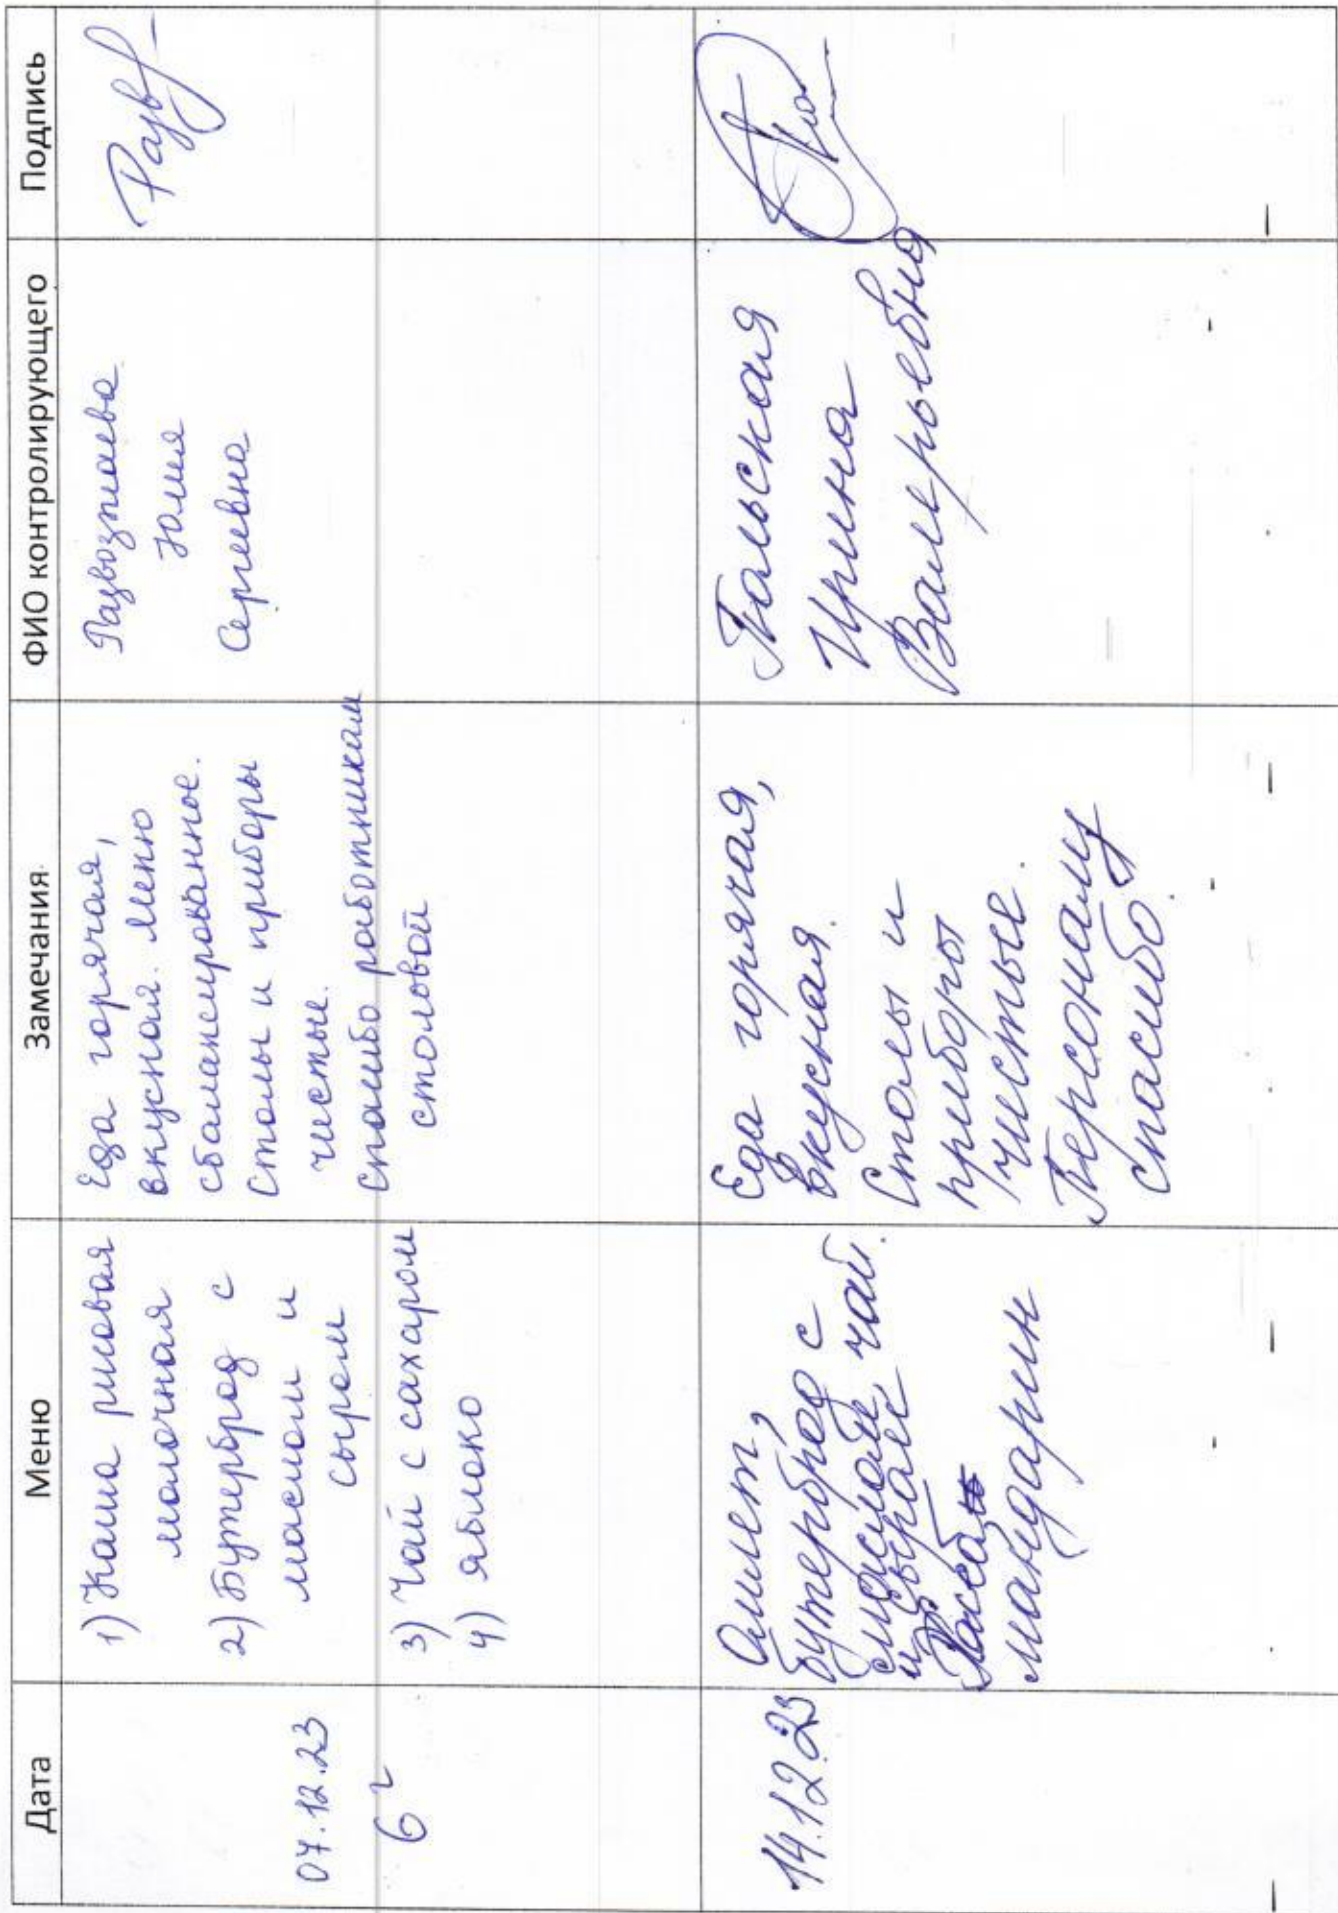 Дата Меню Замечания ФИО контролирующего Подпись
07.12.23
6г
1) Каша рисовая
молочная
2) Бутерброд с
маслом и
сыром
3) Чай с сахаром
4) яблоко
Еда горячая,
вкусная. Меню
сбалансированное.
Столы и приборы
чистые.
Спасибо работникам
столовой
Развозжаева
Юлия
Сергеевна
14.12.23
Омлет,
бутерброд с
маслом, чай.
и сыром
мандарин
Еда горячая,
вкусная.
Столы и
приборы
чистые.
Персоналу
спасибо.
Пальская
Ирина
Валерьевна